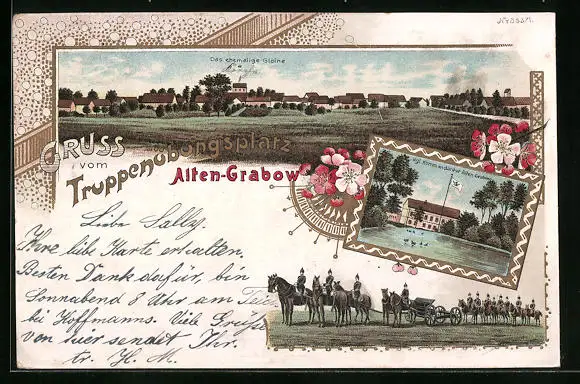 Das ehemalige Gloine
GRUSS
vom
Truppenübungsplatz
Alten-Grabow
Kgl. Kommandantur Alten-Grabow
Liebe Sally.
Ihre liebe Karte erhalten.
Besten Dank dafür, bin
Sonnabend 8 Uhr am
bei Hoffmanns. Viele Grüße
von hier sendet Ihr.
tr. H. M.